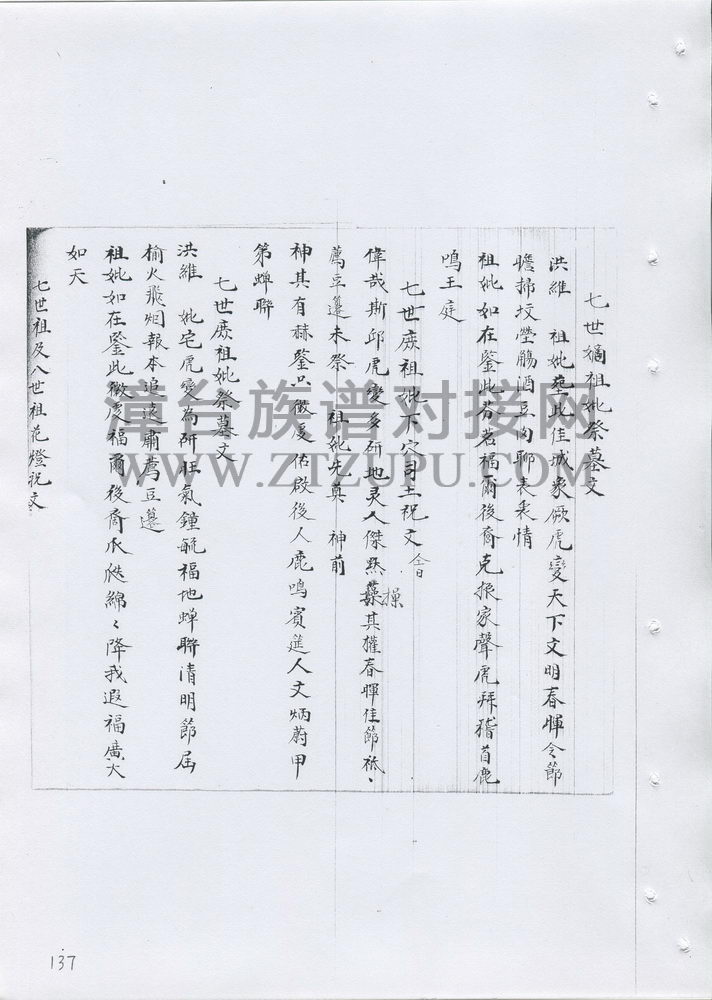 七世嫡祖妣祭墓文
洪維　祖妣塟此佳城象厥虎變天下文明春暉令節
瞻掃坟塋觴酒豆肉聊表衷情
祖妣如在鑒此芬苾福爾後裔克振家聲虎拜稽首鹿
鳴王庭
七世庻祖妣下穴司土祝文 合日
偉哉斯邱虎變多研地灵人傑烝其權春暉佳節祗〻
操
薦豆籩未祭　祖妣先奠　神前
神其有赫鑒只微虔佑啟後人鹿鳴賓筵人文炳蔚甲
第蝉聯
七世庻祖妣祭墓文
洪維　妣宅虎變為研旺氣鐘毓福地蝉聯清明節届
榆火飛烟報本追遠肅薦豆籩
祖妣如在鑒此微虔福爾後裔瓜瓞綿〻降我遐福廣大
如天
七世祖及八世祖花燈祝文
漳台族谱对接网
WWW.ZTZUPU.COM
137